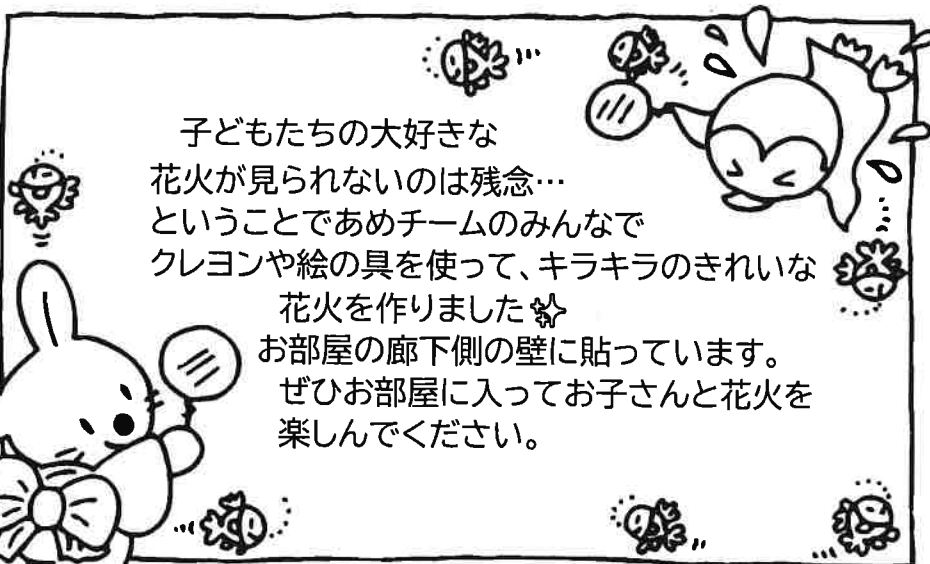 子どもたちの大好きな
花火が見られないのは残念…
ということであめチームのみんなで
クレヨンや絵の具を使って、キラキラのきれいな
花火を作りました✨
お部屋の廊下側の壁に貼っています。
ぜひお部屋に入ってお子さんと花火を
楽しんでください。